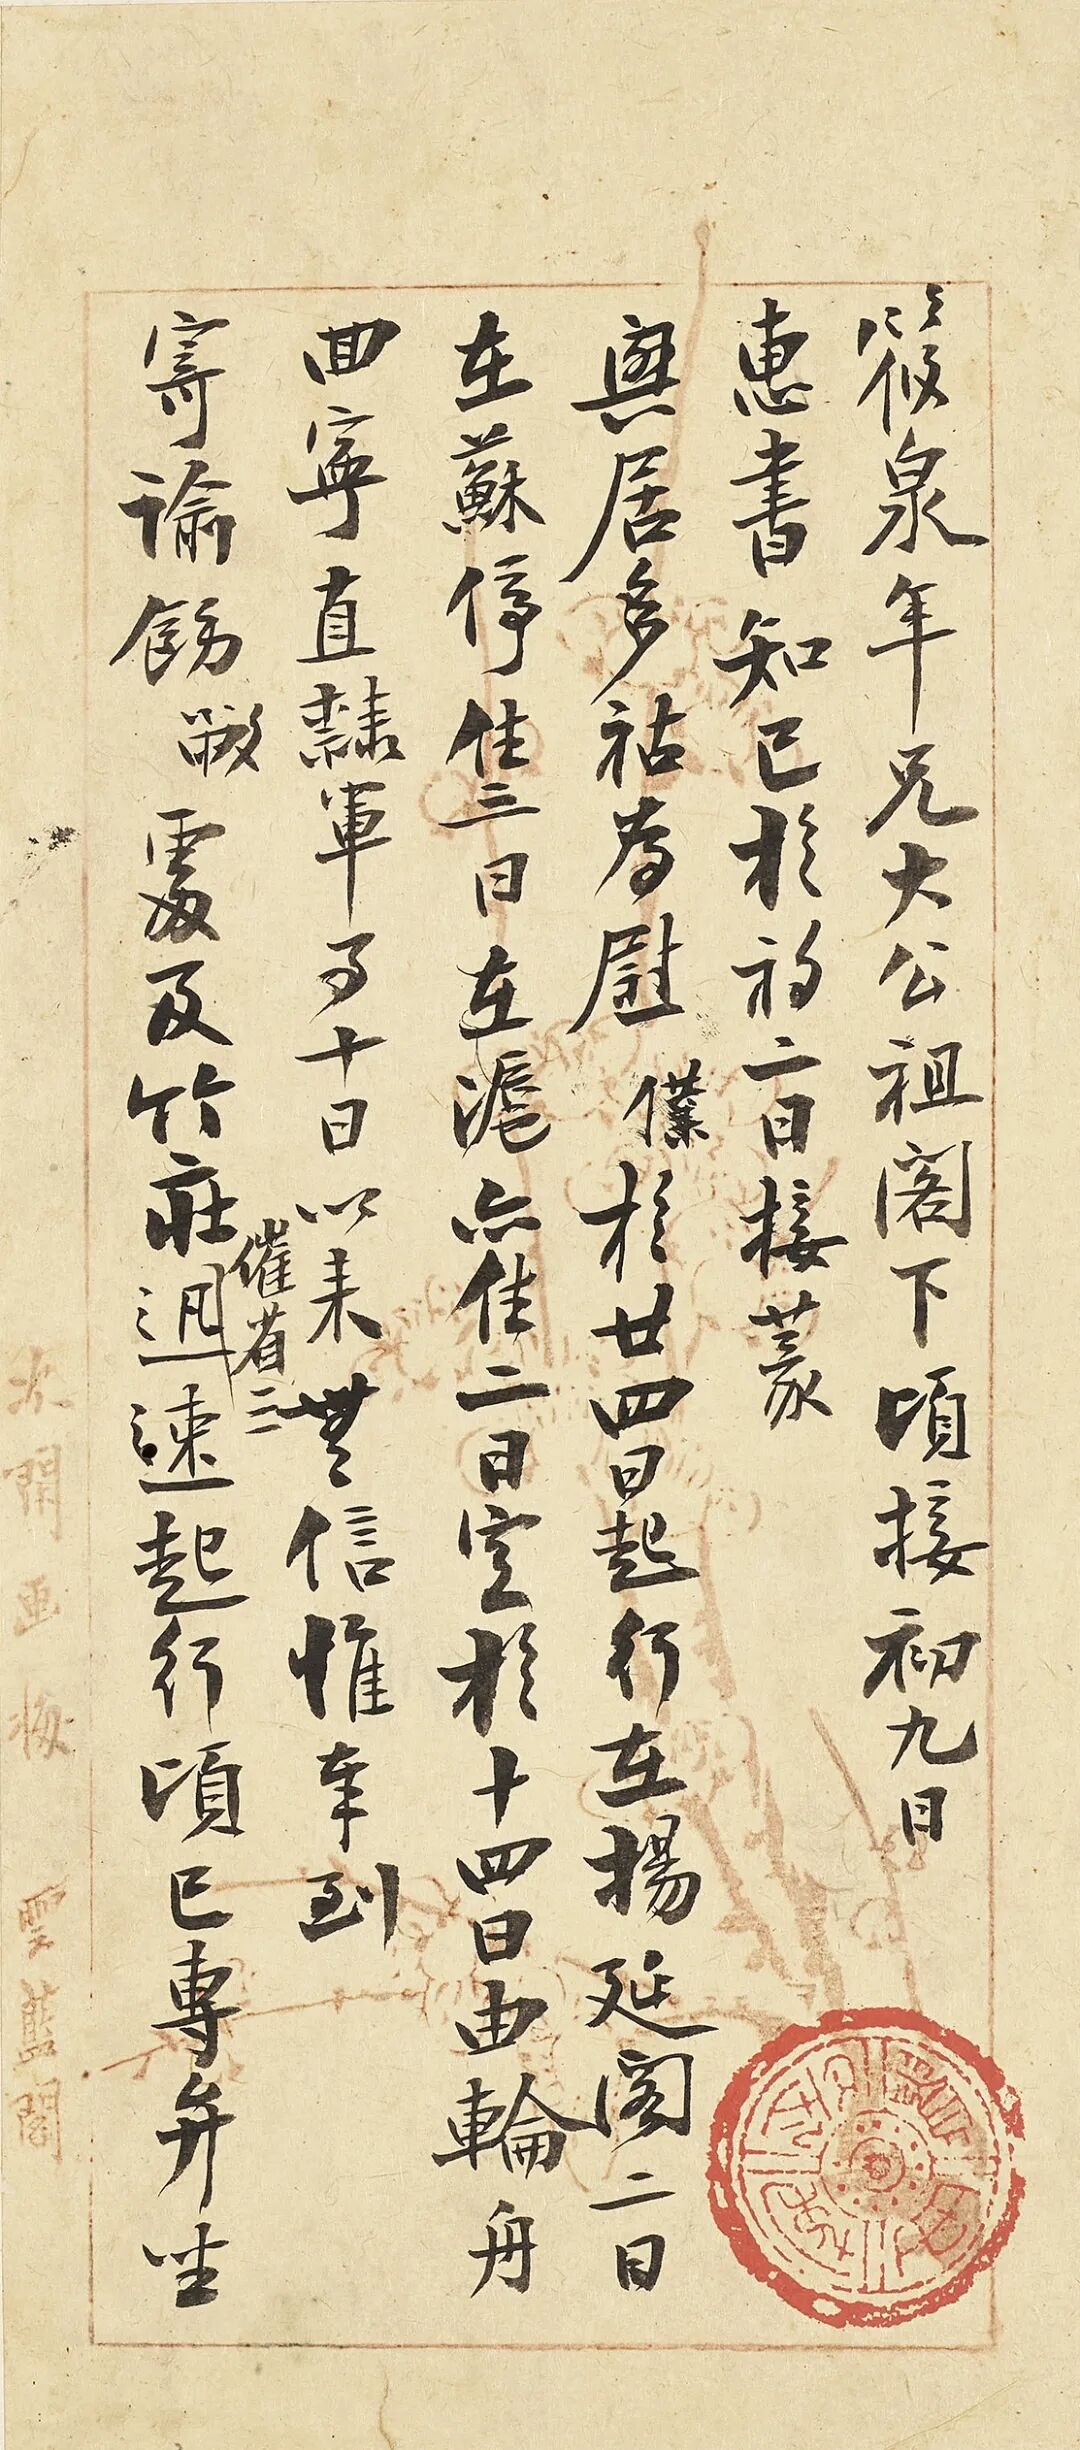 筱泉年兄大公祖閣下頃接初九日
惠書知已於初二日接篆
興居多祜為慰僕於廿四日起行在揚延閣二日
在蘇停住三日在滬亦住二日定於十四日由輪舟
回寧直隸軍事十日以來無信惟奉到
寄諭飭敝處及竹莊迅速起行頃已專弁坐
催省三